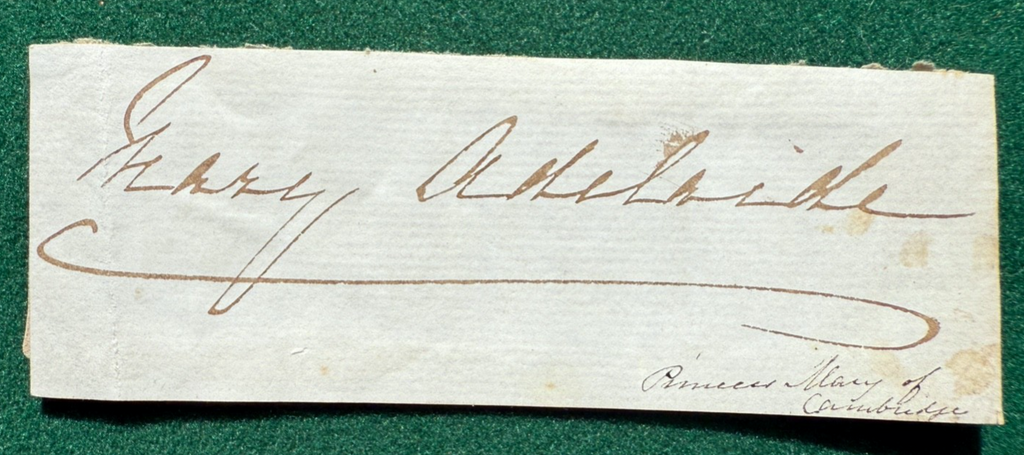 Mary Adelaide
Princess Mary of
Cambridge